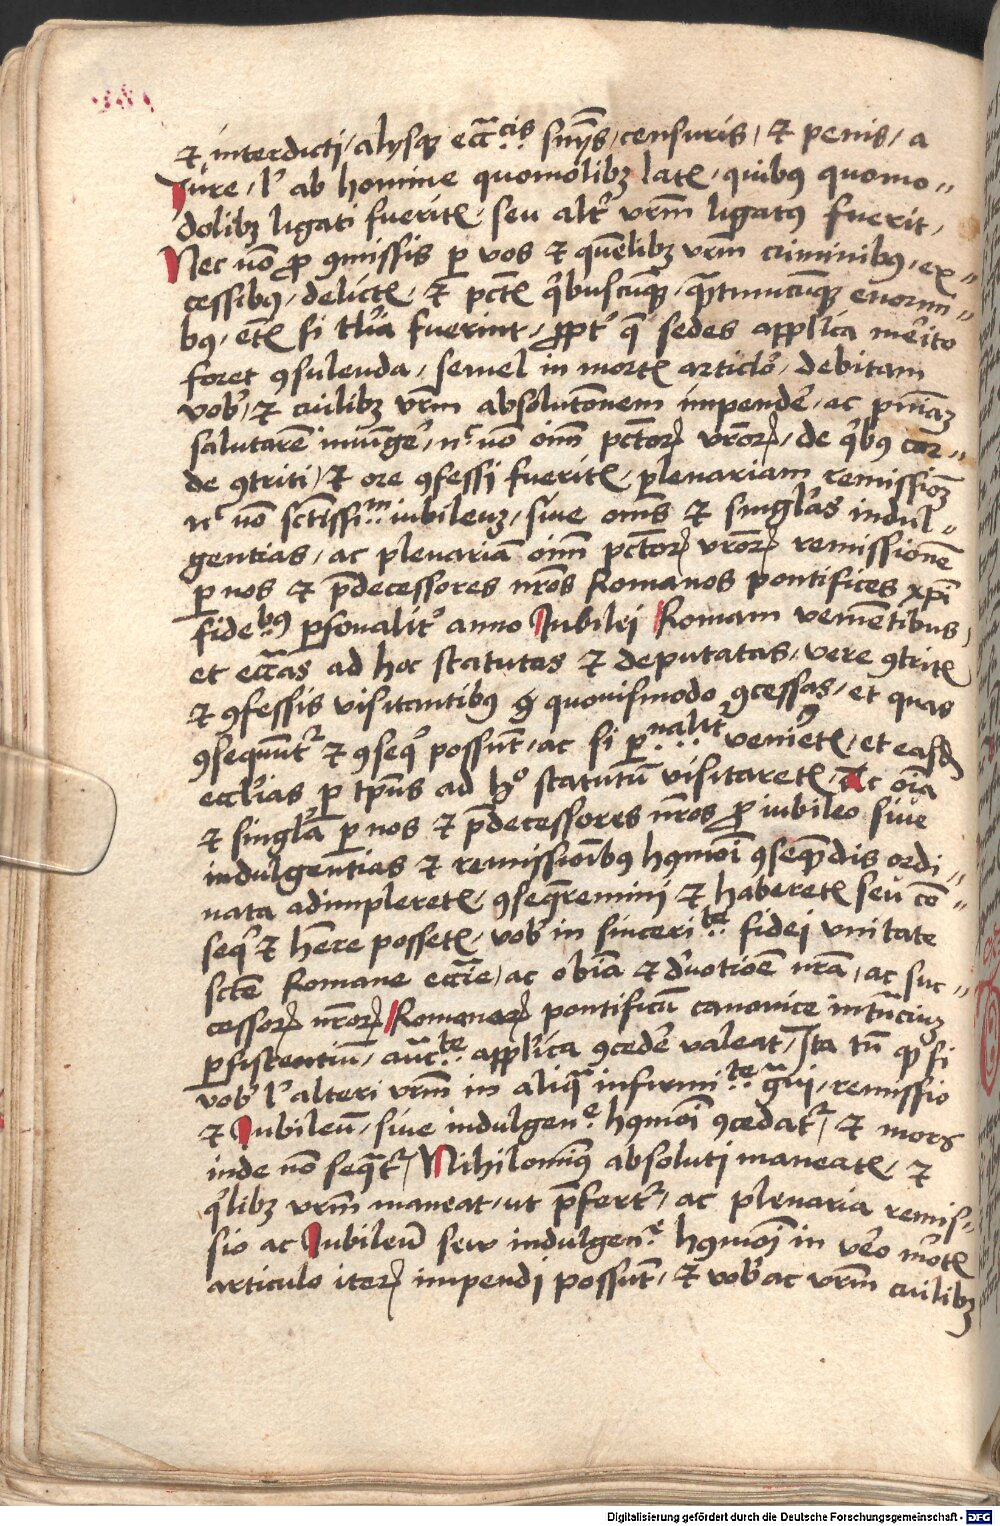 et interdicti / alysq3 ecc̄cis sn̄ijs / censuris / et penis / a
Jure / l' ab homine quomolib3 latꝭ / quibꝰ quomo〃
dolib3 ligati fueritꝭ / seu alt' vr̄m ligatꝰ fuerit /
Nec nō ꝓ ꝯmissis ꝑ vos et quēlib3 vr̄m criminibꝰ / ex〃
cessibꝰ / delictꝭ / et pctꝭ q'buscūq3 / qᷓntumcūq3 enormi〃
bꝰ / etꝭ si tl'ia fuerint / ꝓpt' q̄ sedes appl'ica m'ito
foret ꝯsulenda / semel in mortꝭ articlo / debitam
vob' / et cuilib3 vr̄m absolutōnem impende' / ac pn̄iā3
salutarē iniūge' / nᶜ nō oīm pctorꝝ vr̄orꝝ / de q'bꝰ cor〃
de ꝯtriti / et ore ꝯfessi fueritꝭ / plenariam remissiōꝫ
nᶜ nō sctissiᵐ iubileuꝫ / siue om̄s et singl'as indul〃
gentias / ac plenariā oīm pctorꝝ vr̄orꝝ remissionē
ꝑ nos et p̄decessores nr̄os Romanos pontifices xp̄i
fidebꝰ ꝑsonalit' anno Jubilei Romam venientibus /
et ecc̄as ad hoc statutas et deputatas / vere ꝯtritꝭ
et ꝯfessis visitantibꝰ quouismodo ꝯcessas / et quas
ꝯsequunt' et ꝯseq' possunt / ac si ꝑnalit' venietꝭ / et easd
eccl'ias ꝑ tp̄us ad hº statutū visitaretꝭ / Ac oīa
et singl'a ꝑ nos et p̄decessores nr̄os ꝓ iubileo siue
indulgentias et remissionibꝰ hꝰmōi ꝯseqᷓndis ordi〃
nata adimpleretꝭ / ꝯseqᷓremini et haberetꝭ seu cō〃
seq' et hēre possetꝭ / vob' in sinceriᵗᵉ fidei vnitate
scte Romane ecc̄ie / ac obīa et d'uotiōe nr̄a / ac suc〃
cessorꝝ nr̄orꝝ Romanorꝝ pontificū canonice intrāciuꝫ
ꝑsistentiū / auc̄ᵗᵉ appl'ica ꝯcede' valeat / Ita tn̄ qꝫ si
vob' l' alteri vr̄m in aliqᷓ infirmiᵗᵉ gᷓui / remissio
et Jubileū / siue indulgenᵉ hꝰmōi ꝯcedat' / et mors
inde nō seqᷓt' / Nihilominꝰ absoluti maneatꝭ / et
q'lib3 vr̄m maneat / ut p̄fert' / ac plenaria remis〃
sio ac Jubileū seu indulgenᵉ hꝰmōi in v'o m'otꝭ
articulo iterꝝ impendi possunt / et vob' ac vr̄m cuilib3
Digitalisierung gefördert durch die Deutsche Forschungsgemeinschaft - DFG